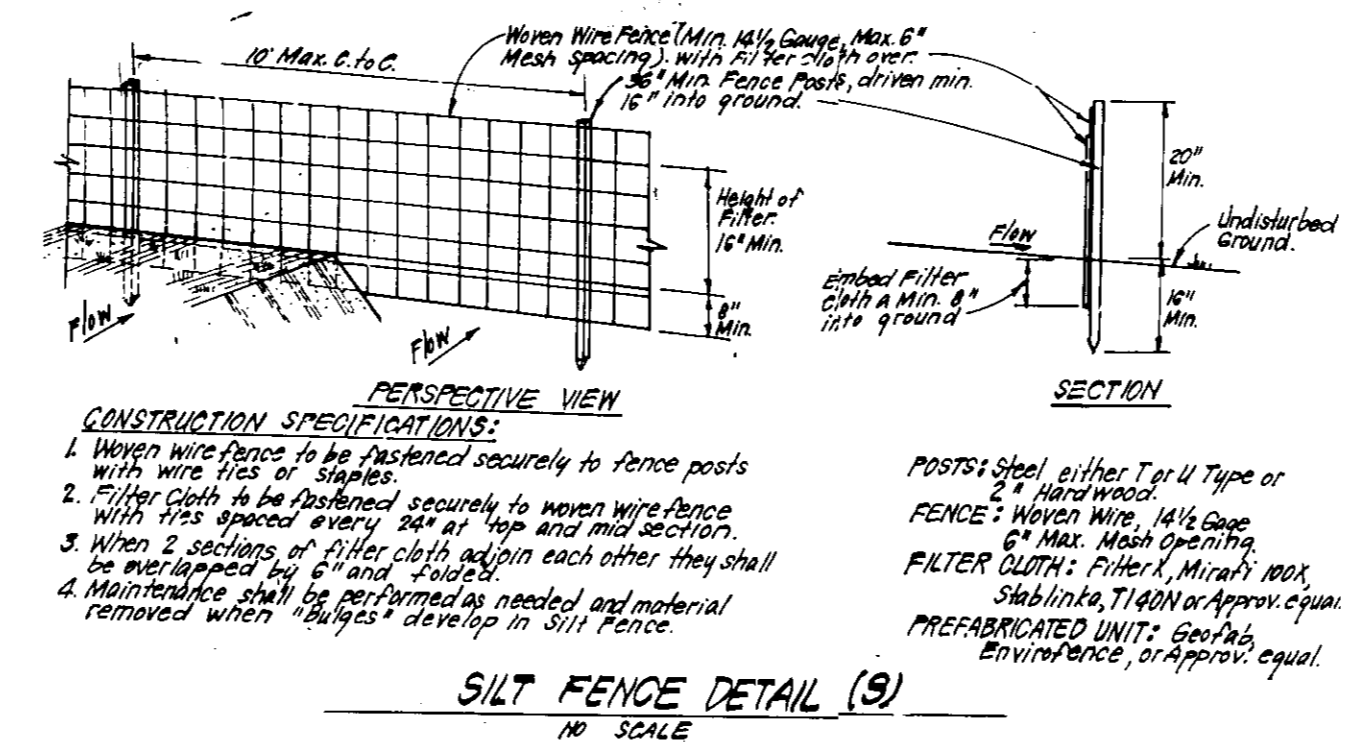 10' Max. C. to C.
Woven Wire Fence (Min. 14½ Gauge, Max. 6"
Mesh Spacing) with Filter cloth over.
36" Min. Fence Posts, driven min.
16" into ground.
Height of
Filter.
16" Min.
8"
Min.
Flow
Flow
PERSPECTIVE VIEW
20"
Min.
Undisturbed
Ground.
Flow
Embed Filter
cloth a Min. 8"
into ground
16"
Min.
SECTION
CONSTRUCTION SPECIFICATIONS:
1. Woven wire fence to be fastened securely to fence posts
with wire ties or staples.
2. Filter Cloth to be fastened securely to woven wire fence
with ties spaced every 24" at top and mid section.
3. When 2 sections of filter cloth adjoin each other they shall
be overlapped by 6" and folded.
4. Maintenance shall be performed as needed and material
removed when "Bulges" develop in Silt Fence.
POSTS: Steel either T or U Type or
2" Hardwood.
FENCE: Woven Wire, 14½ Gage
6" Max. Mesh Opening.
FILTER CLOTH: Filter X, Mirafi 100X,
Stablinka, T140N or Approv. equal.
PREFABRICATED UNIT: Geofab,
Envirofence, or Approv. equal.
SILT FENCE DETAIL (S)
NO SCALE